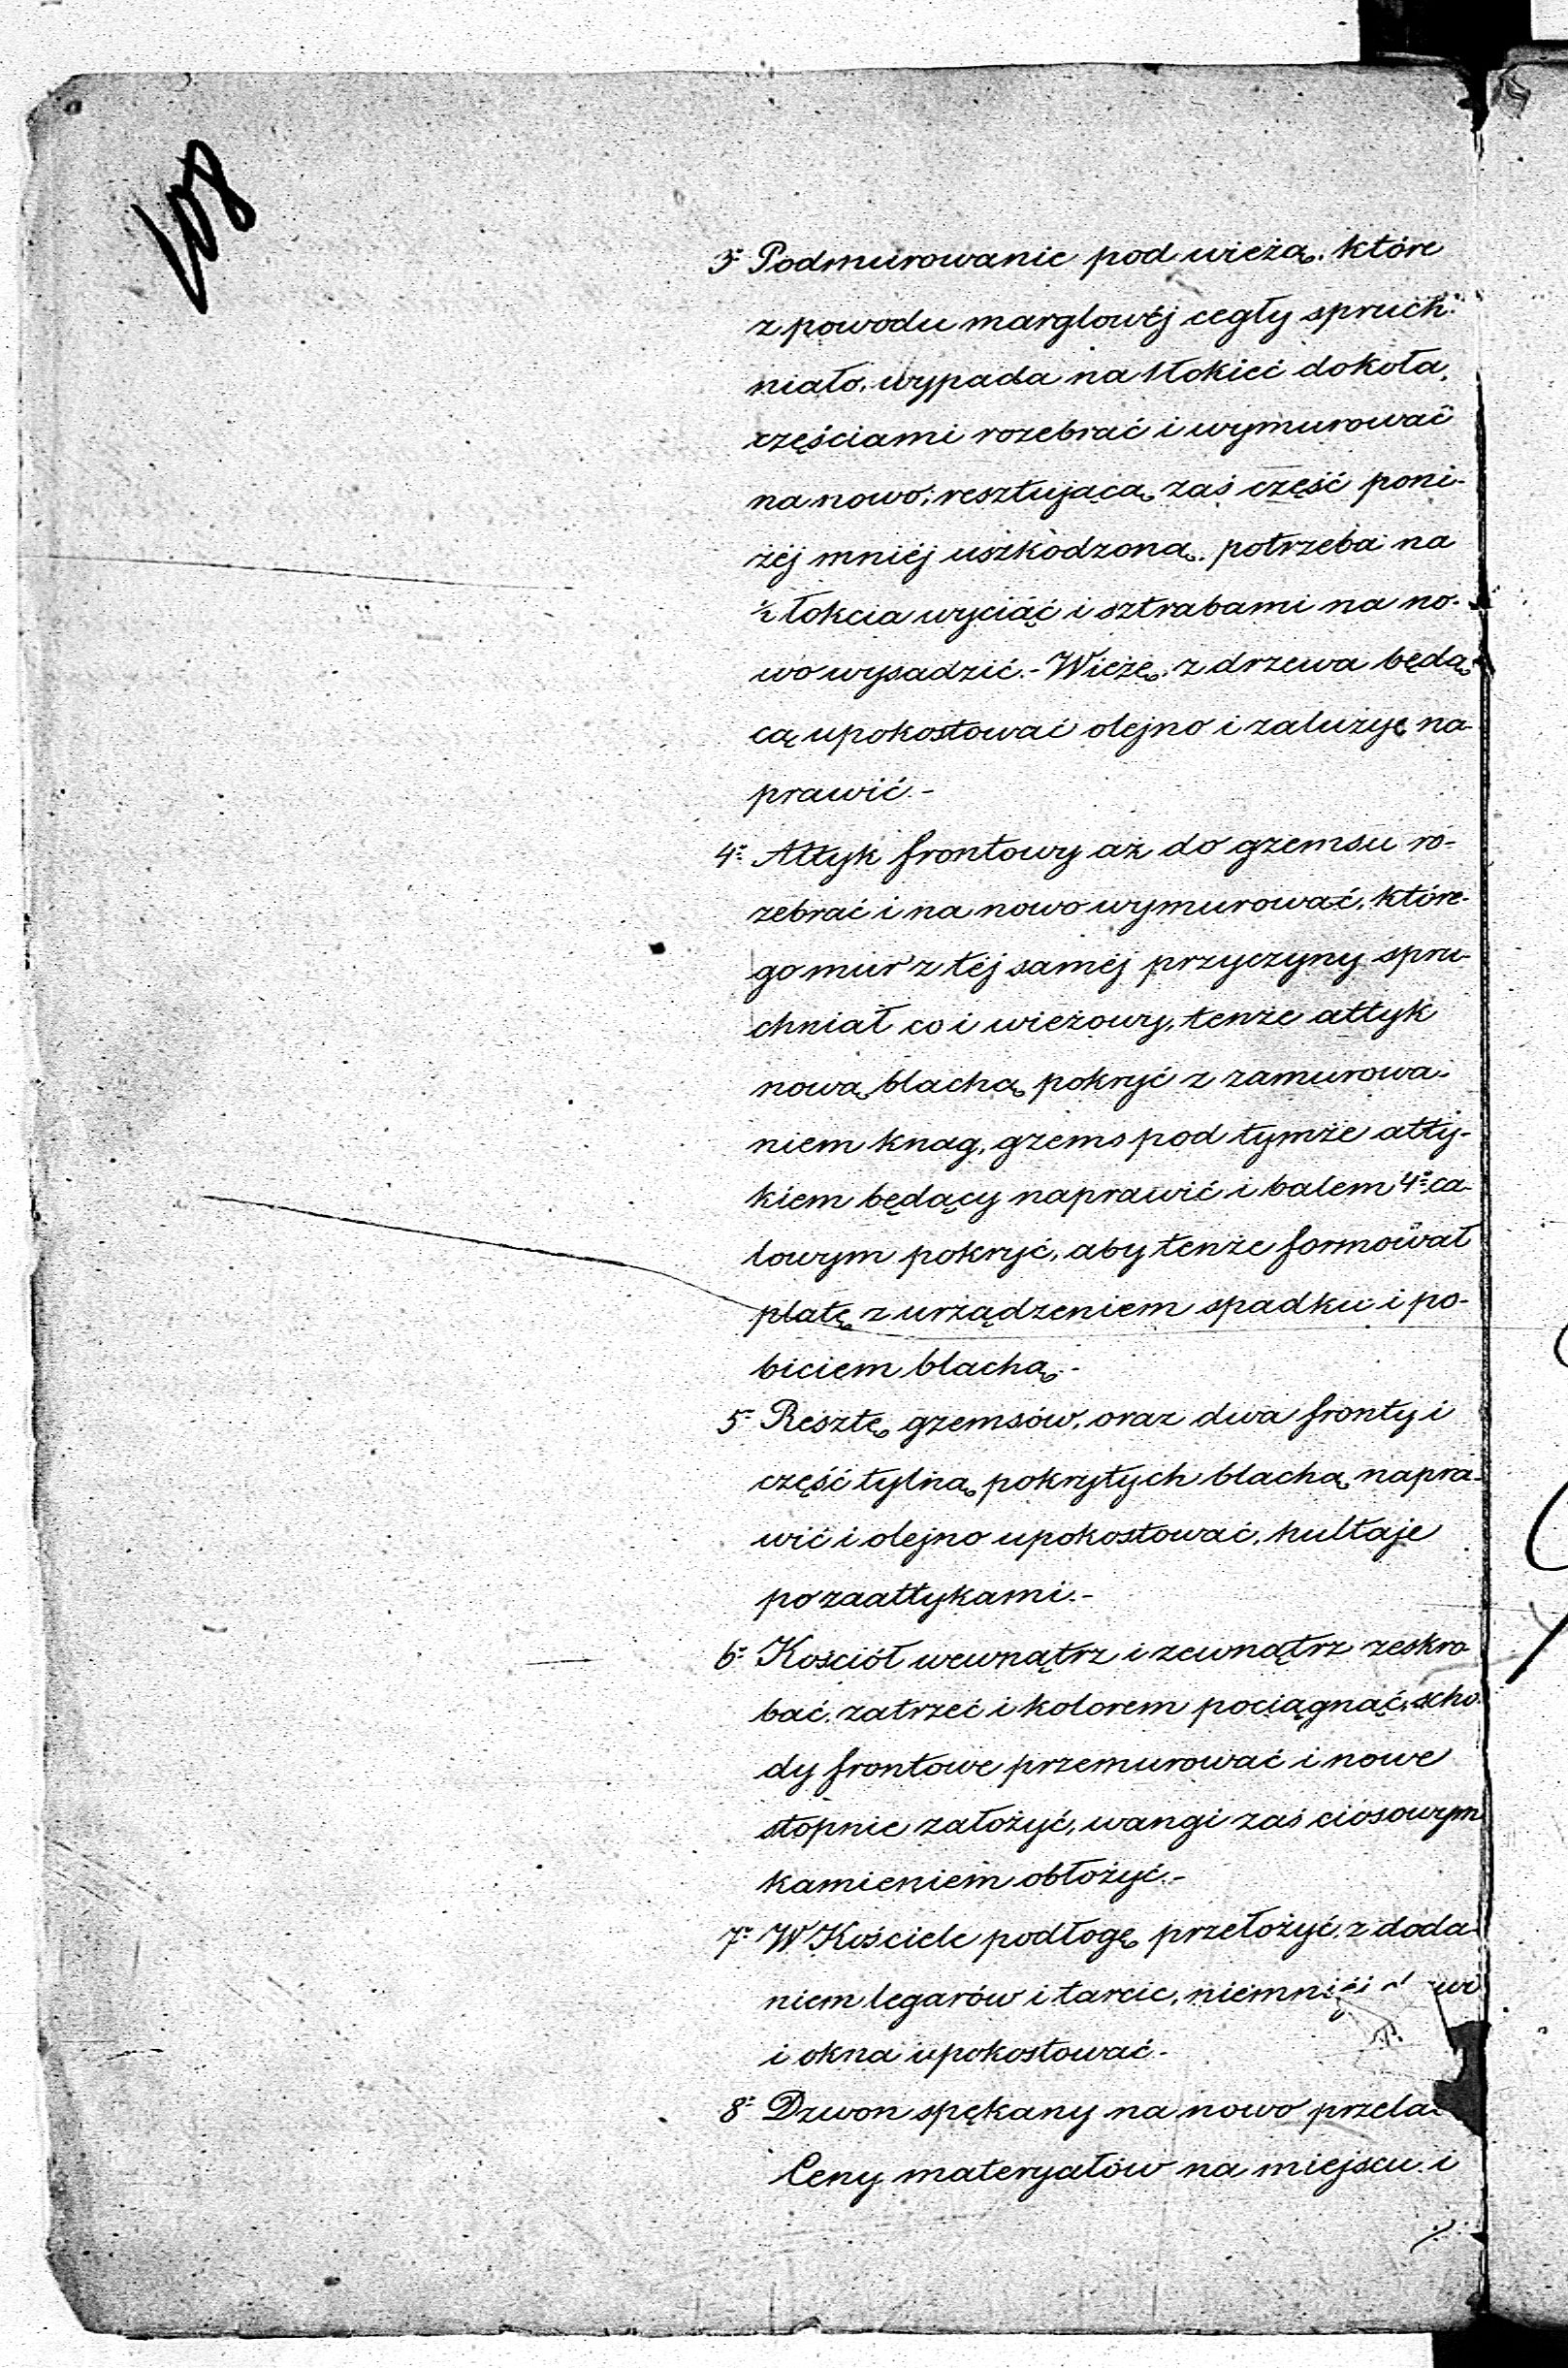 108
3º Podmurowanie pod wieżą, które
z powodu marglowéj cegły spruch-
niało, wypada na 1 łokieć dokoła,
częściami rozebrać i wymurować
na nowo; resztującą zaś część poni-
żéj mniéj uszkodzoną, potrzeba na
½ łokcia wyciąć i sztrabami na no-
wo wysadzić.- Wieżę z drzewa będą-
cą upokostować olejno i żaluzyę na-
prawić.-
4º Attyk frontowy aż do gzemsu ro-
zebrać i na nowo wymurować, które-
go mur z téj saméj przyczyny spru-
chniał co i wieżowy, tenże attyk
nową blachą pokryć z zamurowa-
niem knag, gzems pod tymże atty-
kiem będący naprawić i balem 4º ca-
lowym pokryć, aby tenże formował
platę z urządzeniem spadku i po-
biciem blachą.-
5º Resztę gzemsów, oraz dwa fronty i
część tylną pokrytych blachą napra-
wić i olejno upokostować, hultaje
poza attykami.-
6º Kościół wewnątrz i zewnątrz zeskro
bać, zatrzeć i kolorem pociągnąć, scho
dy frontowe przemurować i nowe
stopnie założyć, wangi zaś ciosowym
kamieniem obłożyć.-
7º W Kościele podłogę przełożyć z doda
niem legarów i tarcic, niemniéj
i okna upokostować.-
8º Dzwon spękany na nowo
Ceny materyałów na miejscu i